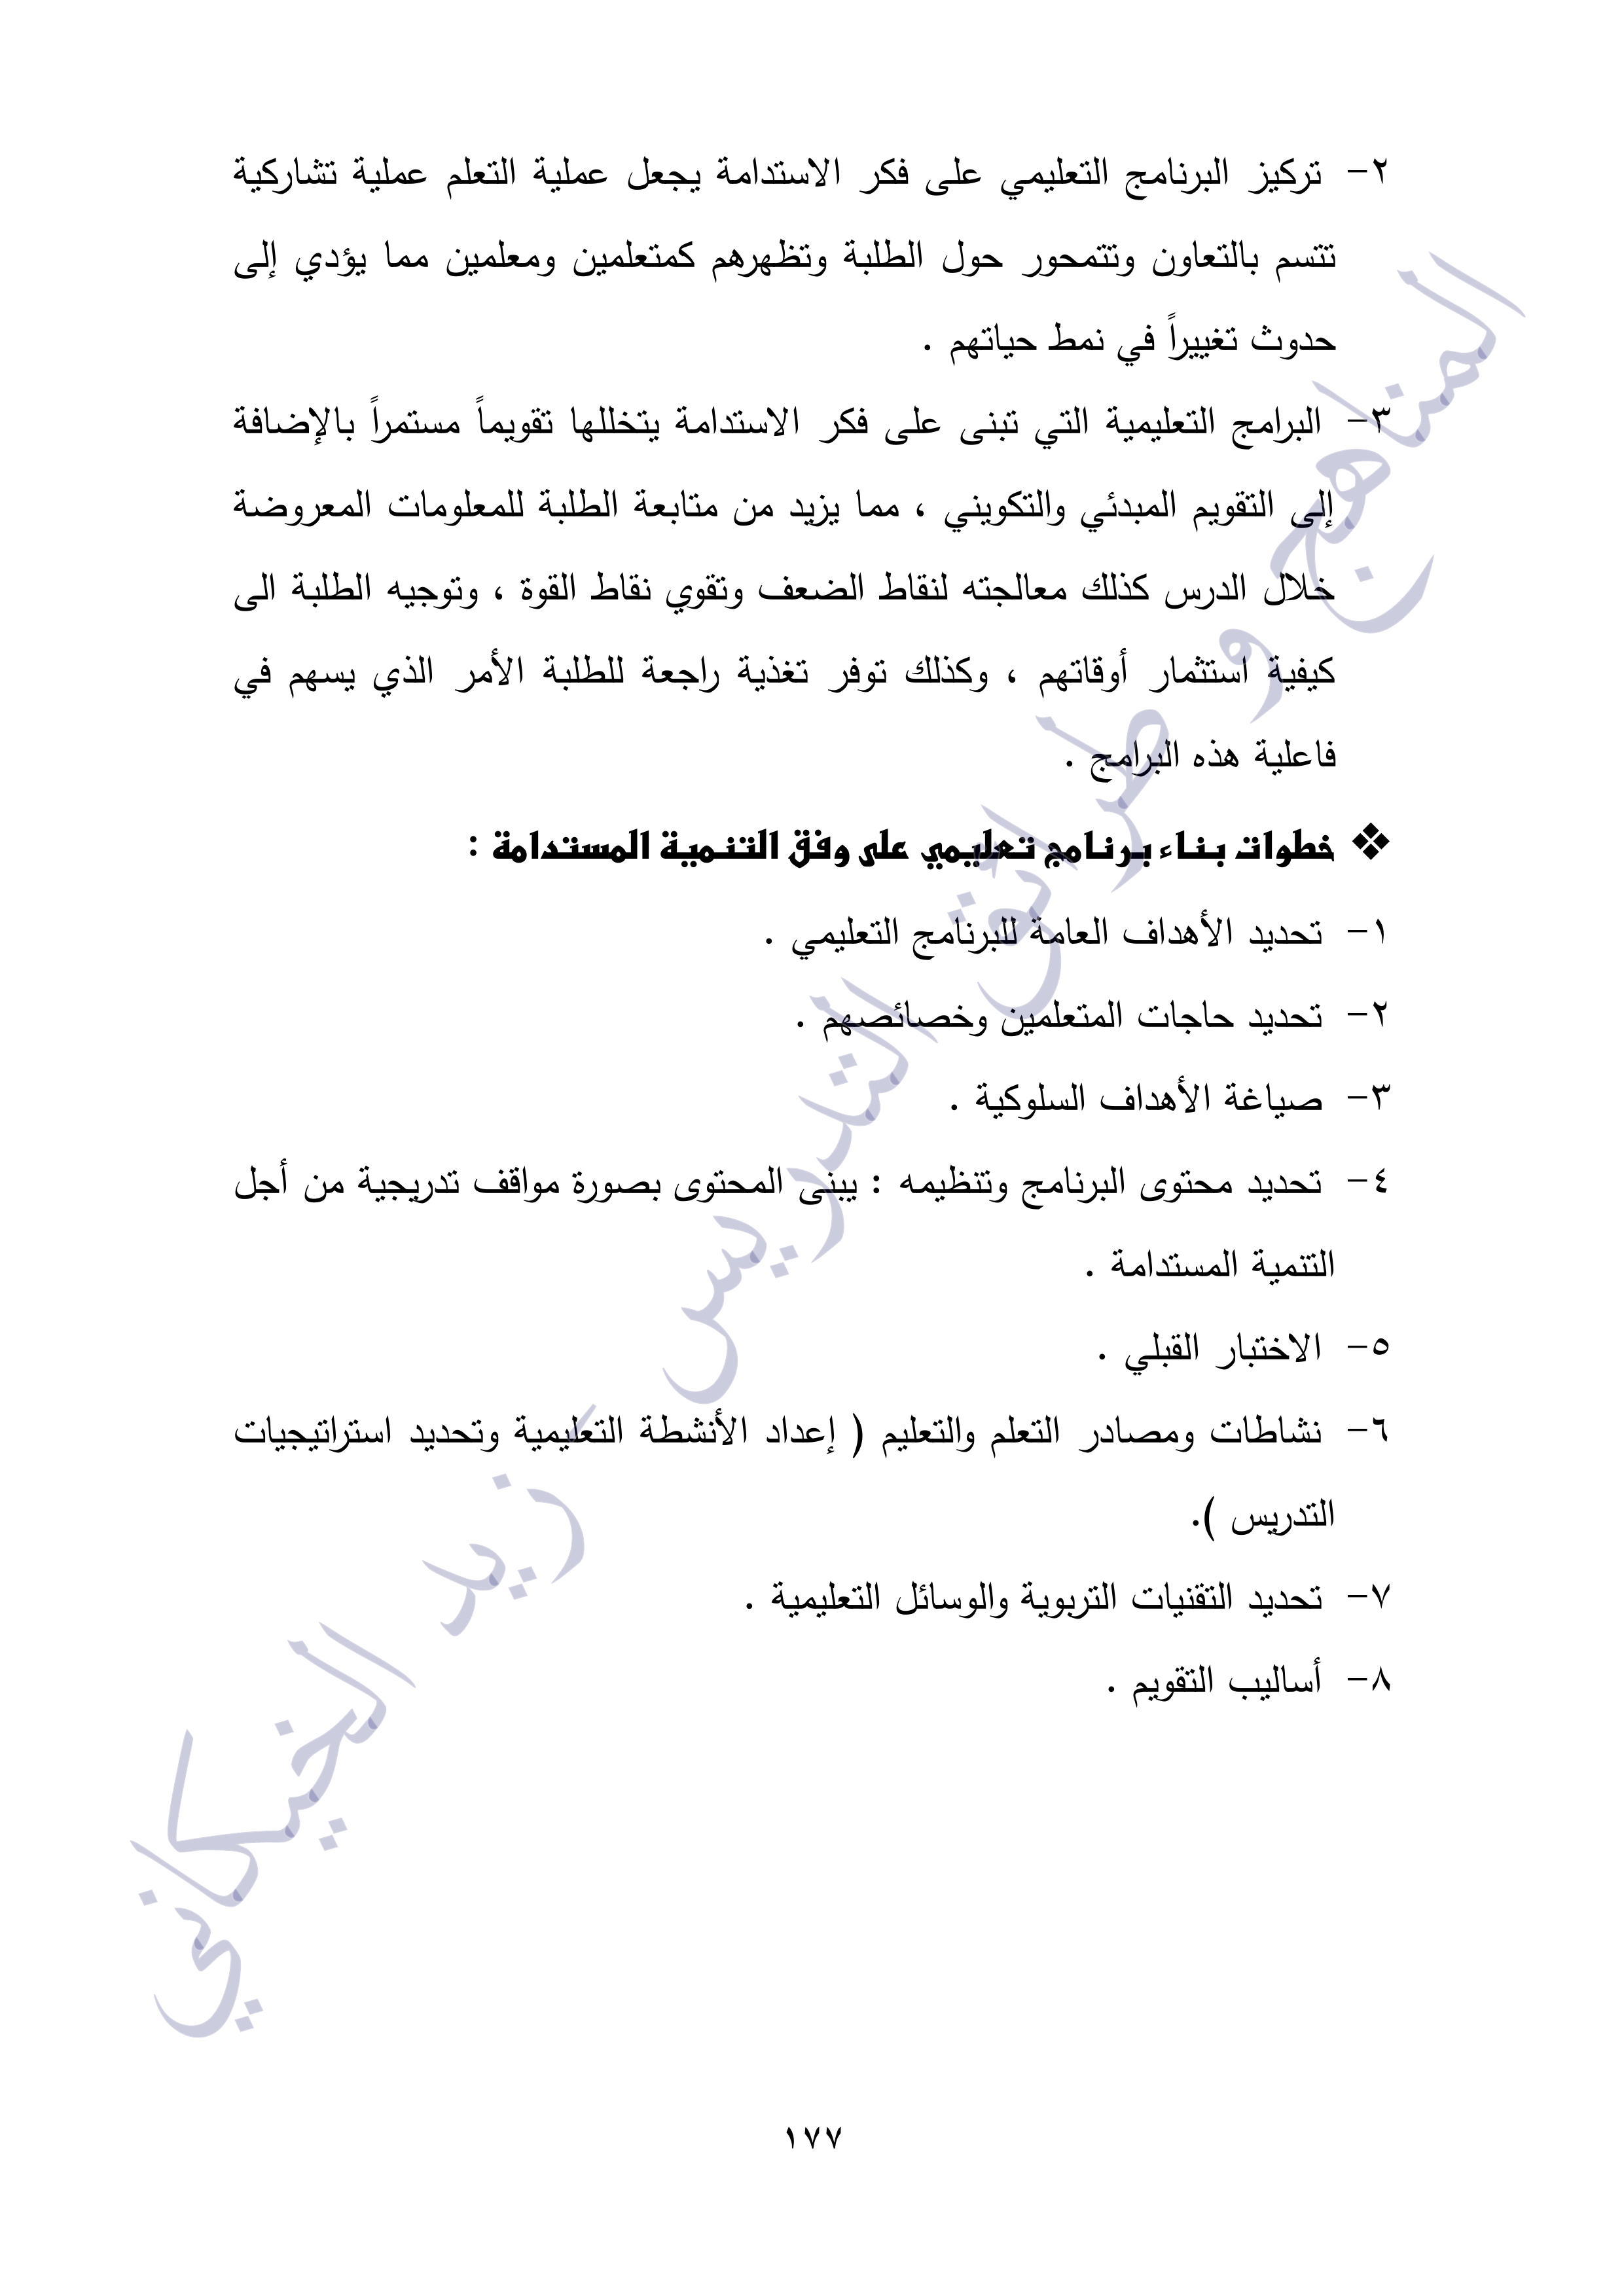 ٢- تركيز البرنامج التعليمي على فكر الاستدامة يجعل عملية التعلم عملية تشاركية
تتسم بالتعاون وتتمحور حول الطلبة وتظهرهم كمتعلمين ومعلمين مما يؤدي إلى
حدوث تغييراً في نمط حياتهم .
٣- البرامج التعليمية التي تبنى على فكر الاستدامة يتخللها تقويماً مستمراً بالإضافة
إلى التقويم المبدئي والتكويني ، مما يزيد من متابعة الطلبة للمعلومات المعروضة
خلال الدرس كذلك معالجته لنقاط الضعف وتقوي نقاط القوة ، وتوجيه الطلبة الى
كيفية استثمار أوقاتهم ، وكذلك توفر تغذية راجعة للطلبة الأمر الذي يسهم في
فاعلية هذه البرامج .
❖ خطوات بناء برنامج تعليمي على وفق التنمية المستدامة :
١- تحديد الأهداف العامة للبرنامج التعليمي .
٢- تحديد حاجات المتعلمين وخصائصهم .
٣- صياغة الأهداف السلوكية .
٤- تحديد محتوى البرنامج وتنظيمه : يبنى المحتوى بصورة مواقف تدريجية من أجل
التنمية المستدامة .
٥- الاختبار القبلي .
٦- نشاطات ومصادر التعلم والتعليم ( إعداد الأنشطة التعليمية وتحديد استراتيجيات
التدريس ).
٧- تحديد التقنيات التربوية والوسائل التعليمية .
٨- أساليب التقويم .
المناهج و طرائق التدريس - زيد الخيكاني
١٧٧